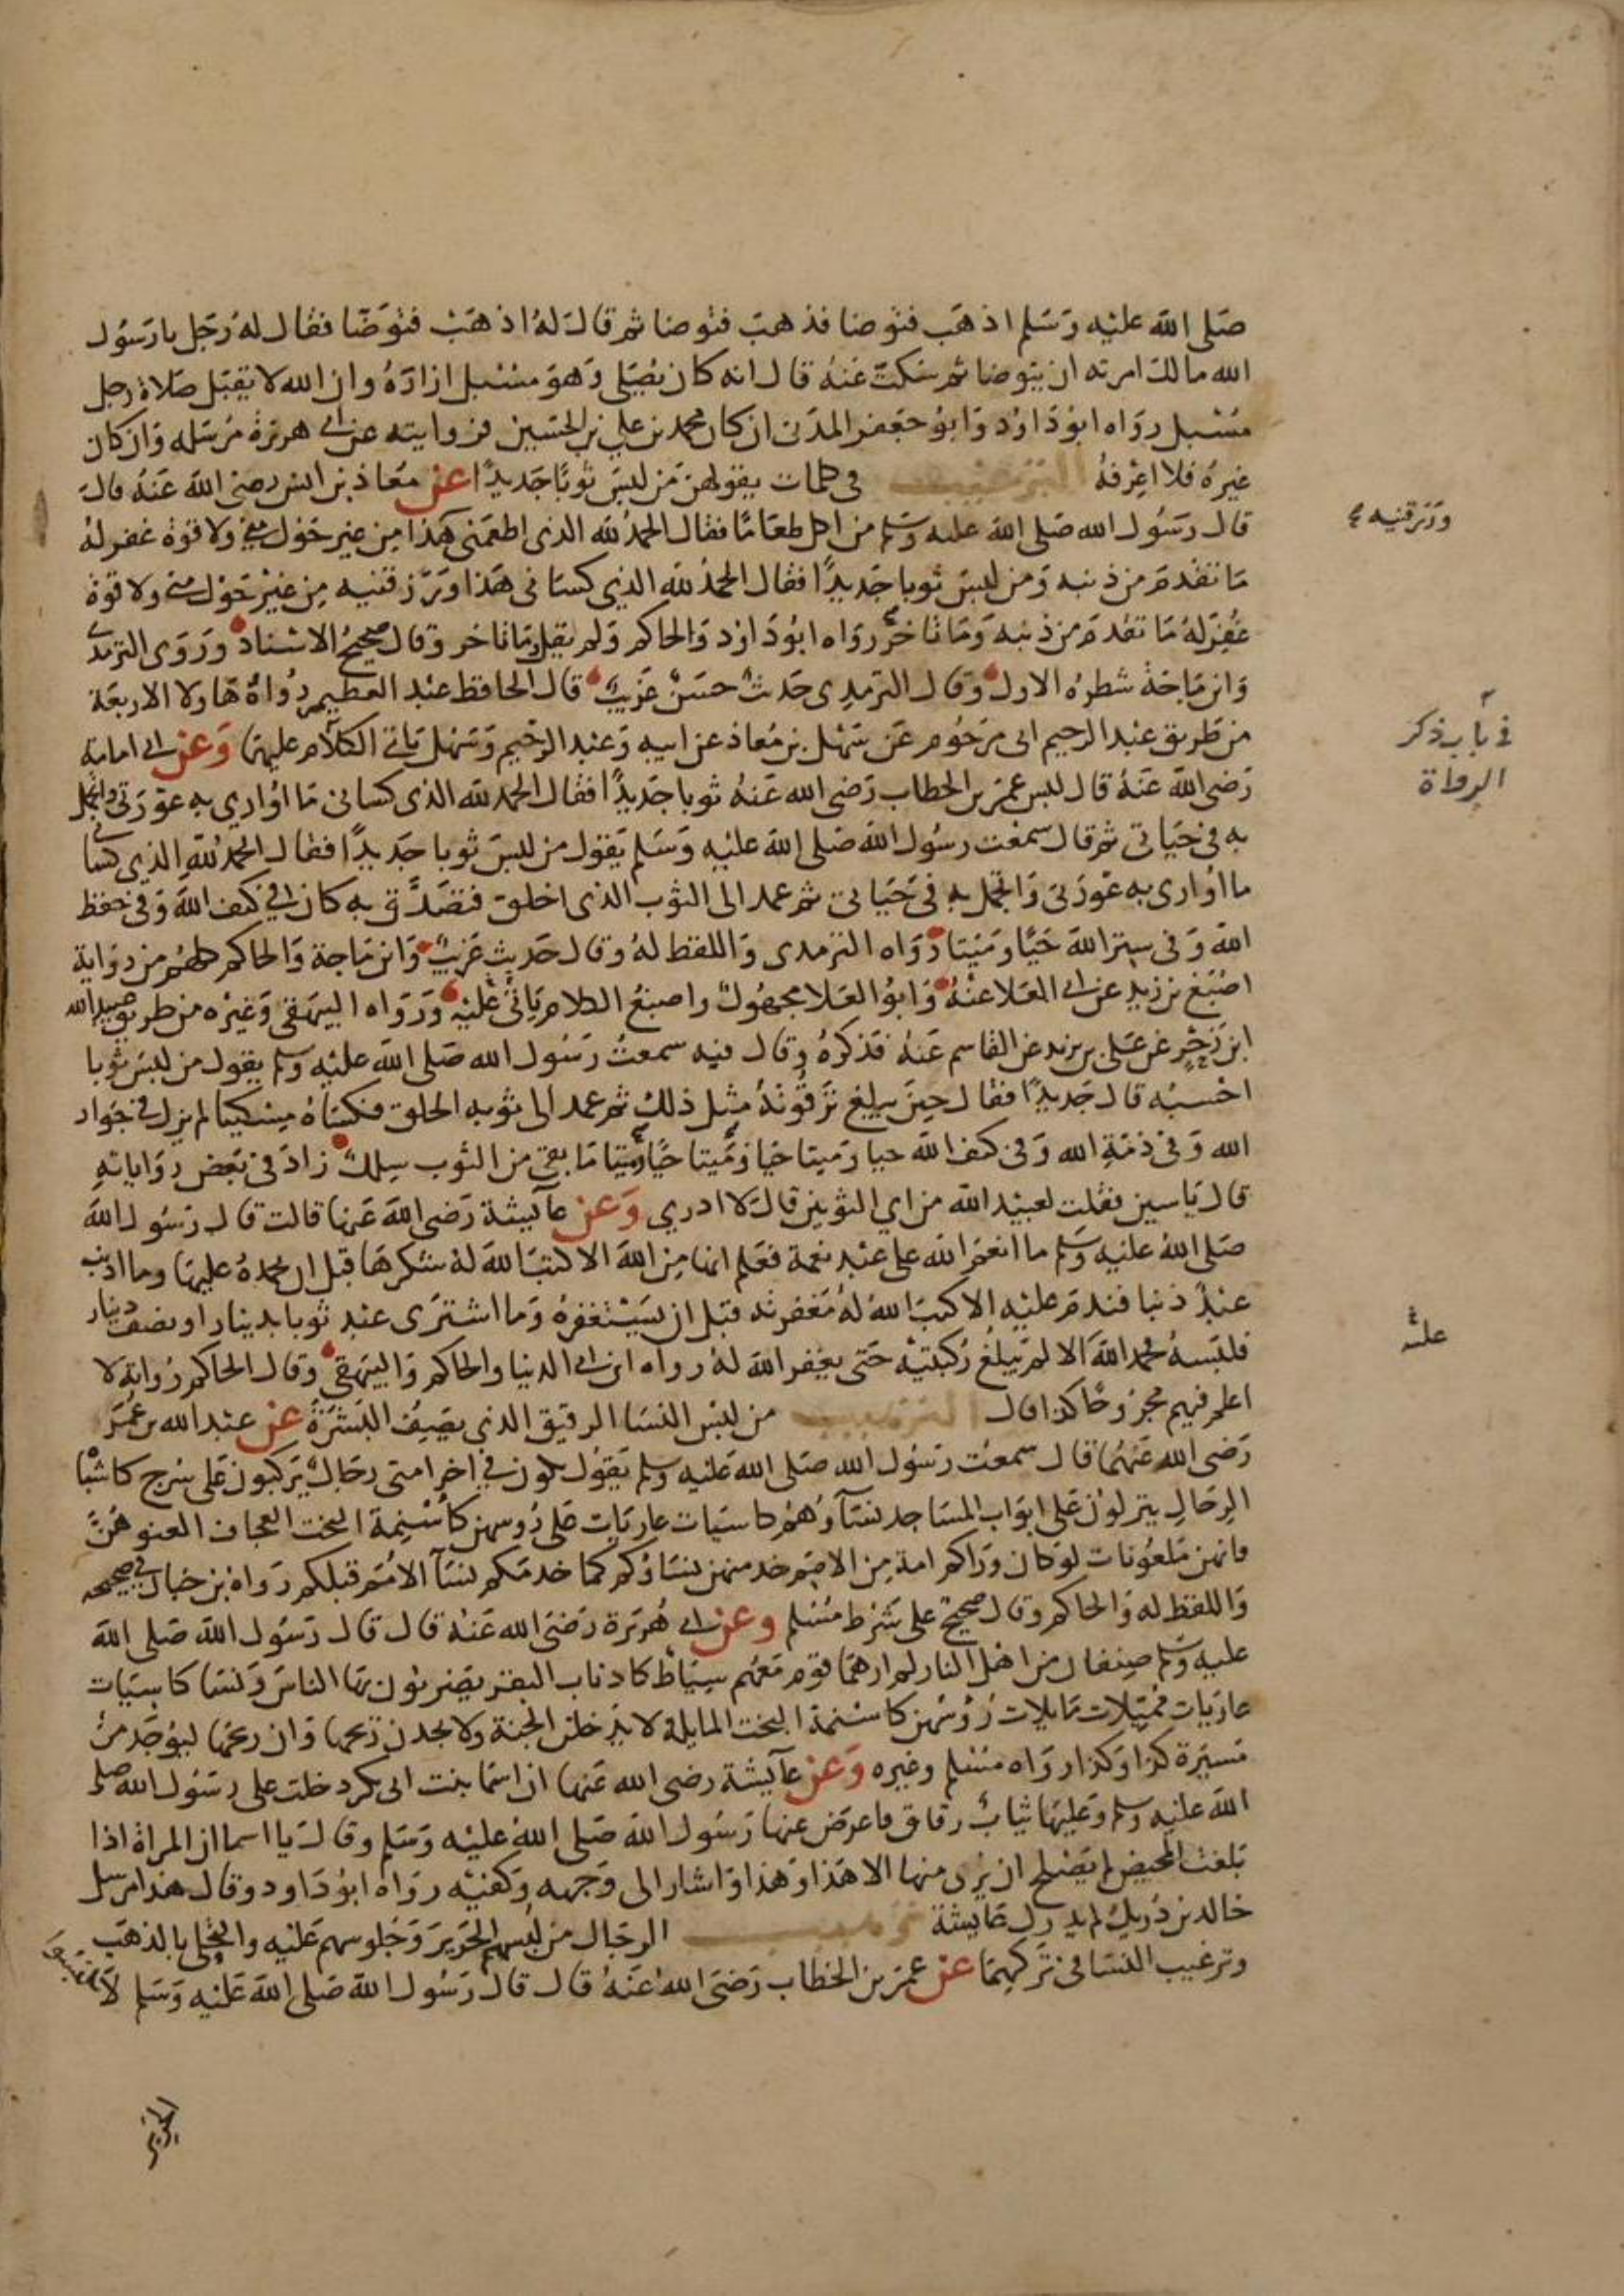 صَلى الله عليْه وَسَلم اذهَب فتوضا فذهبَ فتوضا ثم قالَ لهُ اذهَبْ فتوَضّا فقال لهُ رَجل يارَسُول
الله مالك امرته ان يتوضا ثم سَكتّ عَنهُ قال انه كان يُصَلي وَهوَ مسْبل ازارَهُ وان الله لا يقبَل صَلاة رجل
مسْبل روَاه ابوُ دَاوُد وَابوُ جَعفر المدَنى ان كان محمد بن علي بن الحسَين فروايته عن ابي هريَرة مُرسَله وَان كان
غيرهُ فلا اعِرْفهُ الترغيب في كلمات يقولهن مَن لبسَ ثوبًا جَديدًا عن معَاذ بن انس رضىَ اللهَ عَنهُ قالَ
قال رَسُول الله صَلى اللهَ عليه وَسَلم من اكل طعَامًا فقال الحمدُ لله الذى اطعمَنى هَذا مِن غير حَوْل منى ولا قوة غفرلهُ
مَا تقدمَ من ذنبه وَمن لبسَ ثوبا جَديدًا فقال الحمدُ لله الذي كسَانى هَذا وَرَزقنيه مِن غيْر حَوْل منى ولا قوة
غفِرَ لهُ مَا تقدمَ من ذنبه وَمَا تاخرَ روَاه ابوُ دَاوُد وَالحاكم وَلم يقل وَمَا تاخر وقال صحيحُ الاسْناد وَرَوَى الترمدى
وَابن مَاجَة شطرهُ الاول وَقال الترمدى حَديثْ حسَنْ غَريبٌ قال الحافظ عبْد العظيم رُواةُ هَاولا الاربعَة
من طَريق عبْد الرحيم ابى مَرحُوم عَن سَهْل بن مُعاذ عن ابيه وَعبْد الرحَيم وَسَهْل يَاتى الكلاَم عليهمَا وَعن ابي امامة
رَضى اللهَ عَنهُ قال لبس عمَر بن الخطاب رَضى الله عَنهُ ثوبا جَديدًا فقال الحمد لله الذى كسانى مَا اوُاري به عوْرَتى واتجمل
به في حيَاتى ثم قال سمعْت رسوُل اللهَ صَلى اللهَ عليْه وَسَلم يَقول من لبسَ ثوبا جَديدًا فقال الحمدُ للهِ الذي كسَانى
ما اوُارى به عَوْرَتى وَاتجمل به فى حَيَاتى ثم عمد الى الثوب الذى اخلق فتصَدَّق به كان في كنف اللهَ وَفى حفظ
اللهَ وَ فى سِتر اللهَ حَيًّا وَمَيتا رَوَاه الترمدى وَاللفظ لهُ وقال حَديث غَريبٌ وَابن مَاجة وَالحاكم كلهُم من رِوَاية
اصْبَغ بن زيدٍ عن ابي العَلا عنهُ وَابوُ العَلا مجهُولٌ واصبغُ الكلام يَاتى عَليْه وَرَوَاه البيهَقى وَغيرْه من طريق عبيد الله
ابن زَحْرٍ عن عَلى بن يزيد عن القاسم عَنهُ فذكرَهُ وقال فيه سمعتُ رَسُول الله صَلى الله عليْه وسلم يقول من لبسَ ثوبا
احْسبُه قال جَديدًا فقال حِينَ يبلغ تَرقُوتهُ مثِل ذلكَ ثم عمد الى ثوبه الخلق فكسَاهُ مِسْكينا لم يزل في جَوار
الله وَ فى ذمّةِ الله وَ فى كنف اللهَ حيا وَميتا حَيا وَمَيتا حيًّا وَميتا مَا بقى من الثوب سِلكٌ زادَ فى بَعض رِوَاياتِهِ
قال يَاسين فقلت لعبيْد اللهَ من اي الثوبين قالَ لا ادري وَعن عآيشة رَضىَ اللهَ عَنها قالت قال رسَوُل اللهَ
صَلى اللهُ عليْه وسَلم ما انعمَ الله على عبْد نعمة فعَلم انها مِن اللهَ الا كتبَ اللهَ لهْ شكرهَا قبل ان يحمدهُ عليهَا وما اذنب
عبْدٌ ذنبا فندمَ عليْه الا كتبَ اللهُ لهُ مَغفرته قبل ان يَسْتغفرهُ وَما اشترى عبد ثوبا بدينار او نصف دينار
فلبسهُ فحمد اللهَ الا لم يَبلغُ ركبتيْه حَتى يغفر اللهَ لهُ رواه ابن ابي الدنيا والحاكم وَالبيهَقي وقال الحاكم رُواته لا
اعلم فيهم مجروحًا كذا قال الترهيب من لبس النسَا الرقيق الذي يصَيفُ البَشرَةَ عن عبْد الله بن عُمَر
رَضىَ الله عَنهُما قال سمعْت رسُول الله صَلى اللهَ عَليْه وسلم يَقوُل يكون في اخر امتى رجَالٌ يرَكبون عَلى سُرج كاشبْا
الرحَالِ ينزلوُن عَلى ابوَاب المسَاجد نسَآوُهُم كاسيَات عاريَات عَلى رُوسهن كأسْنِمة البخت العجاف العنوهُنَّ
فانهن مَلعوُنات لوْ كان ورَاكم امة مِن الامَم خدمتهن نسَاؤكم كما خدمَكم نسَآ الامُم قبلكم رَواه ابن حبان في صحيحه
وَاللفظ له وَالحاكم وقال صحيح على شَرْط مُسْلم وعن ابي هُريَرة رَضىَ الله عَنهُ قال قال رَسُول اللهَ صَلى اللهَ
عليه وسَلم صِنفان من اهْل النار لم ارهمَا قوم مَعَهُم سِيَاطْ كاذناب البقر يضربوُن بهَا الناسَ وَنسَا كاسِيَات
عاريَات مُميَلات مَايلات رُؤسُهن كاسْنمة البخت المايلة لا يدْخلن الجنة ولا يجدن ريحَها وَان ريحَها ليوُجَد من
مَسيَرة كذا وَكذا روَاه مسْلم وغيره وَعن عآيشة رضى الله عَنها ان اسمَا بنت ابى بكر دخلت على رسَوُل الله صلى
اللهَ عليه وسلم وَعليهَا ثيَابٌ رقاق فاعرَض عنها رَسُول اللهَ صَلى اللهُ عليْه وَسَلم وقالَ يا اسما ان المراة اذا
بَلغت المحيض لم يَصْلح ان يُرى منها الا هَذا وَهذا وَاشار الى وَجهه وَكفيْه روَاه ابوُ دَاود وقال هَذا مرسل
خالد بن دُريك لم يدرك عَايشة ترهيب الرجَال من لبسهم الحرَيرَ وَجَلوسهم عَليْه والتحلى بالذهَب
وترغيب النسَا فى تَركهمَا عن عمَر بن الخطاب رَضىَ اللهُ عَنهُ قال قالَ رَسُول اللهَ صَلى اللهَ عَليْه وَسَلم لاَ تلبسُوا
ورَزقنيه
في بَاب ذكر
الرواة
عليه
الحرير